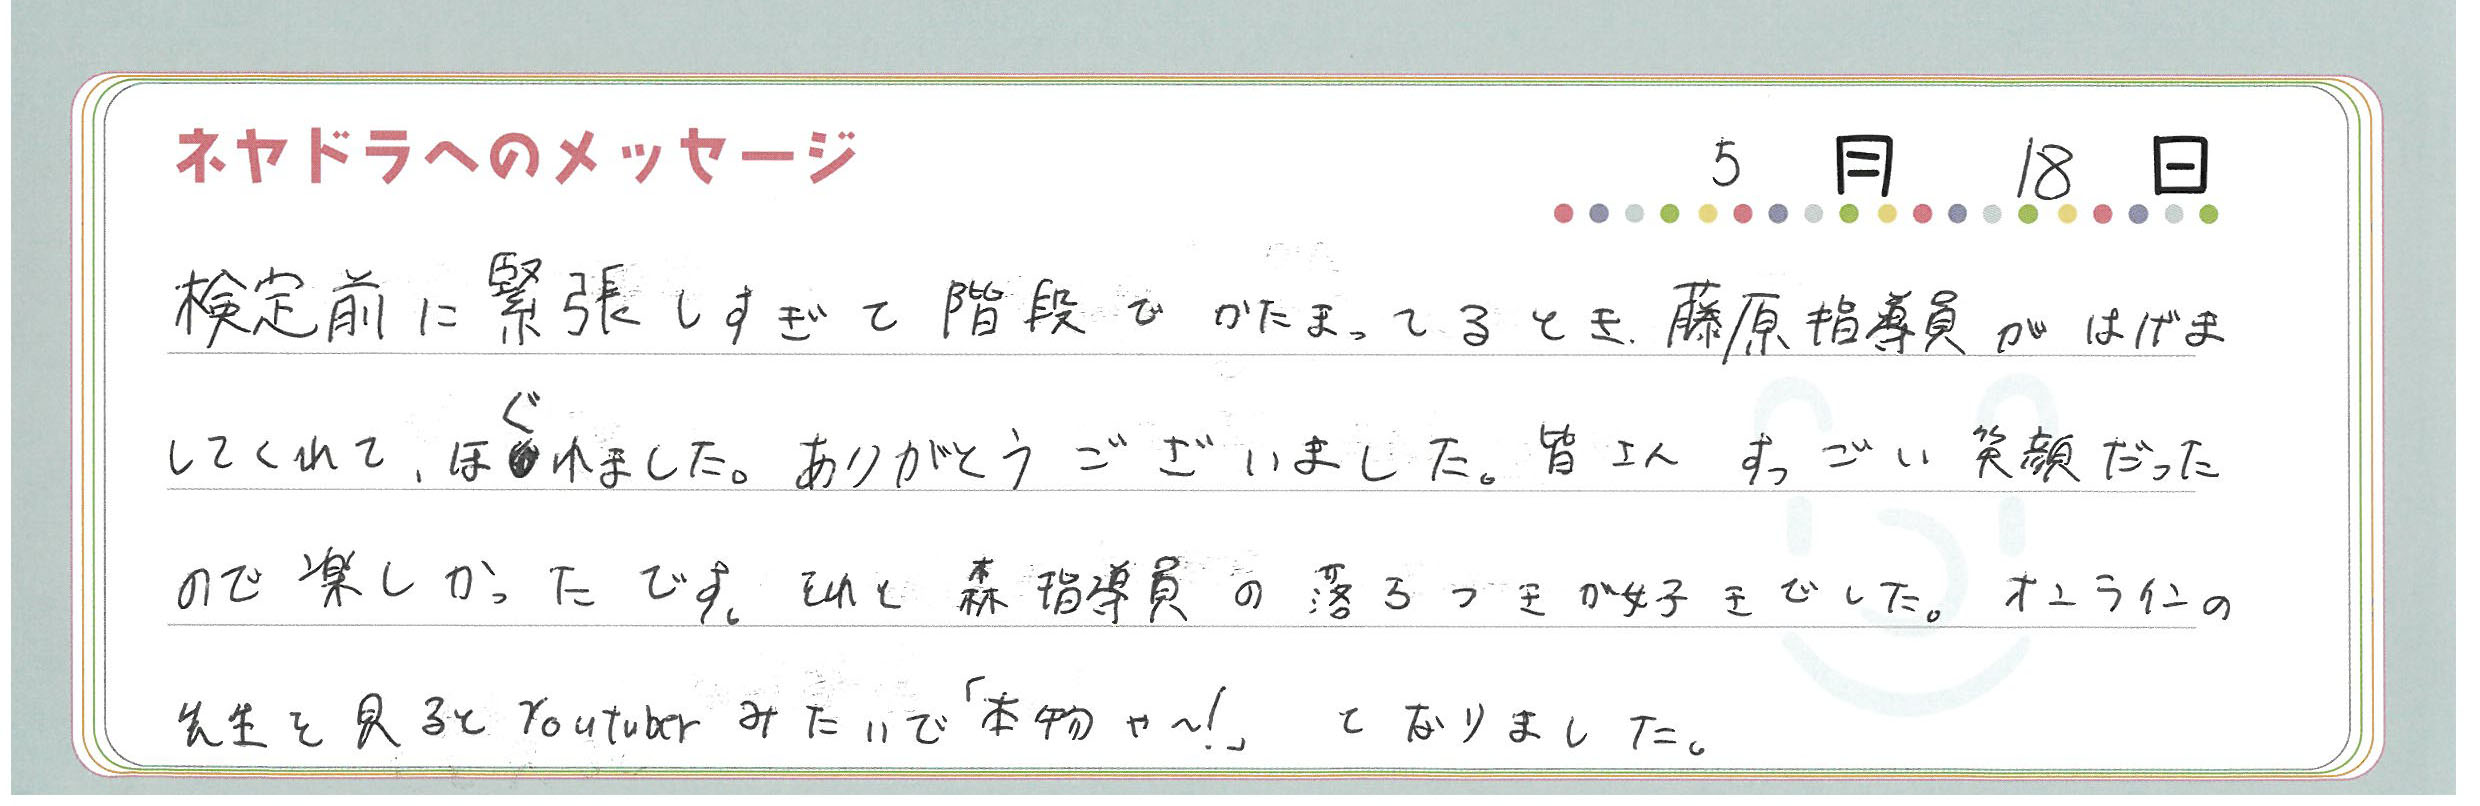 ネヤドラへのメッセージ
5月18日
検定前に緊張しすぎて階段でかたまってるとき、藤原指導員がはげま
してくれて、ほぐれました。ありがとうございました。皆さんすっごい笑顔だった
ので楽しかったです。それと森指導員の落ちつきが好きでした。オンラインの
先生を見るとYoutuberみたいで「本物や〜!」となりました。